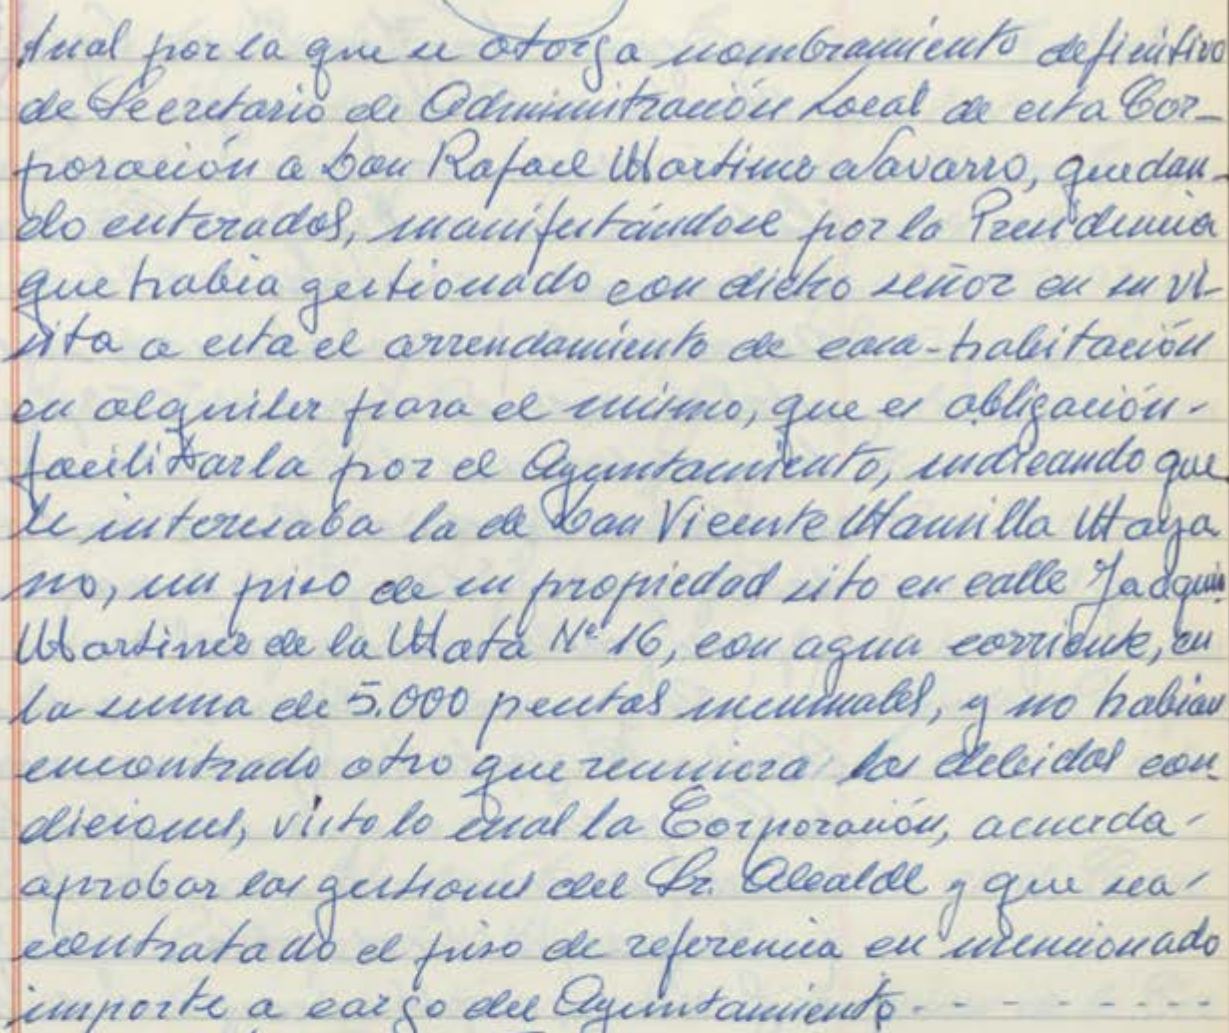 tual por la que se otorga nombramiento definitivo
de Secretario de Administración Local de esta Cor-
poración a Don Rafael Martinez Navarro, quedan-
do enterados, manifestándose por la Presidencia
que habia gestionado con dicho señor en su vi-
sita a esta el arrendamiento de casa-habitación
en alquiler para el mismo, que es obligación-
facilitarla por el Ayuntamiento, indicando que
le interesaba la de Don Vicente Mansilla Moya
no, un piso de su propiedad sito en calle Joaquin
Martinez de la Mata Nº 16, con agua corriente, en
la suma de 5.000 pesetas mensuales, y no habian
encontrado otro que reuniera las debidas con-
diciones, visto lo cual la Corporación, acuerda-
aprobar las gestiones del Sr. Alcalde y que sea-
contratado el piso de referencia en mencionado
importe a cargo del Ayuntamiento.- - - - - - - -